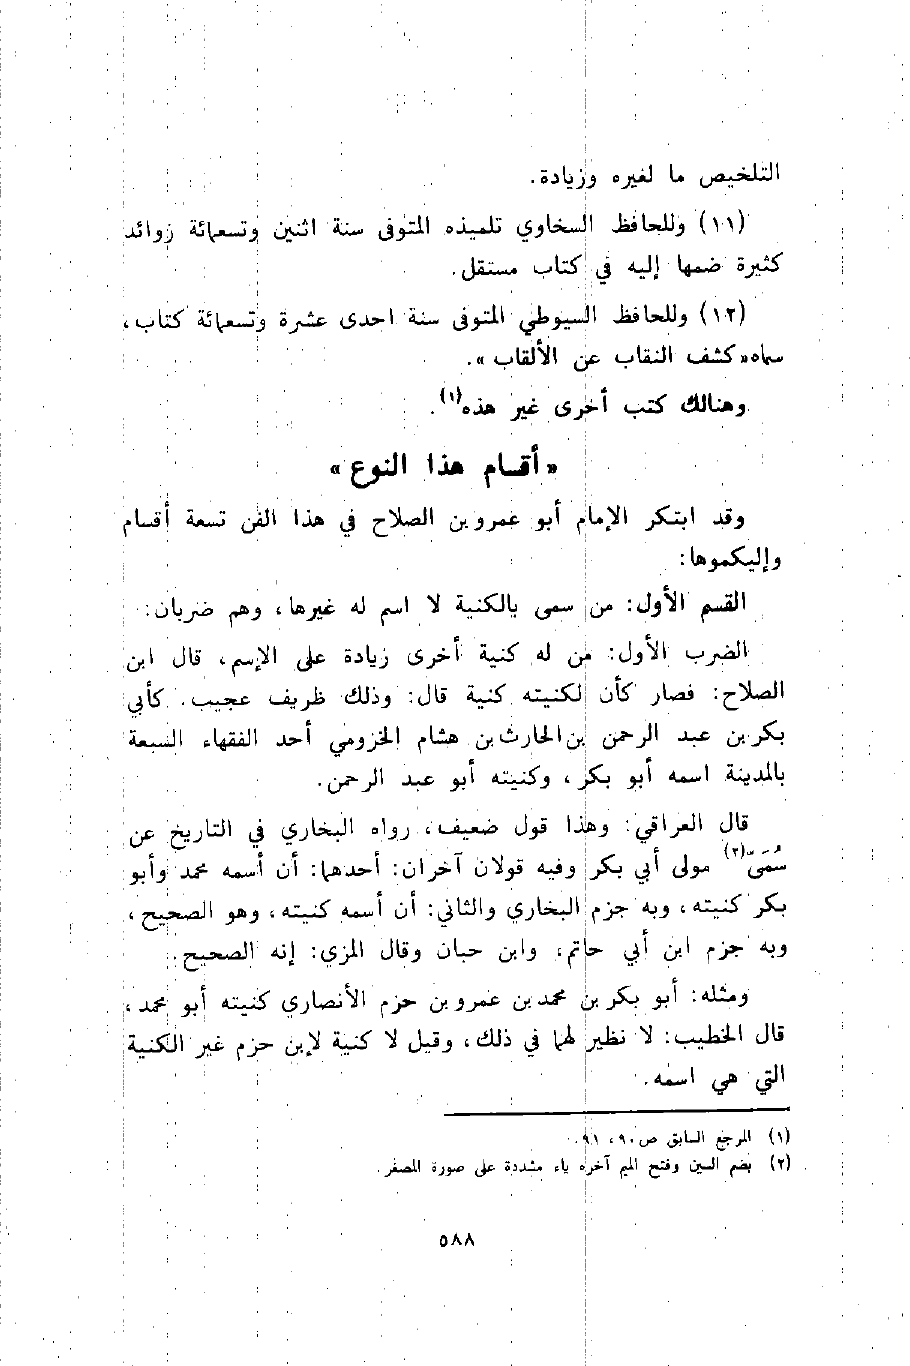 التلخيص ما لغيره وزيادة.
(١١) وللحافظ السخاوي تلميذه المتوفى سنة اثنين وتسعمائة زوائد
كثيرة ضمها إليه في كتاب مستقل.
(١٢) وللحافظ السيوطي المتوفى سنة احدى عشرة وتسعمائة كتاب،
سماه «كشف النقاب عن الألقاب».
وهنالك كتب أخرى غير هذه(١).
«أقسام هذا النوع»
وقد ابتكر الإمام أبو عمرو بن الصلاح في هذا الفن تسعة أقسام
وإليكموها:
القسم الأول: من سمى بالكنية لا اسم له غيرها، وهم ضربان:
الضرب الأول: من له كنية أخرى زيادة على الإسم، قال ابن
الصلاح: فصار كأن لكنيته كنية قال: وذلك ظريف عجيب. كأبي
بكر بن عبد الرحمن بن الحارث بن هشام المخزومي أحد الفقهاء السبعة
بالمدينة اسمه أبو بكر، وكنيته أبو عبد الرحمن.
قال العراقي: وهذا قول ضعيف، رواه البخاري في التاريخ عن
سُمَىّ(٢) مولى أبي بكر وفيه قولان آخران: أحدهما: أن أسمه محمد وأبو
بكر كنيته، وبه جزم البخاري والثاني: أن أسمه كنيته، وهو الصحيح،
وبه جزم ابن أبي حاتم، وابن حبان وقال المزي: إنه الصحيح.
ومثله: أبو بكر بن محمد بن عمرو بن حزم الأنصاري كنيته أبو محمد،
قال الخطيب: لا نظير لهما في ذلك، وقيل لا كنية لإبن حزم غير الكنية
التي هي اسمه.
(١) المرجع السابق ص ٩٠، ٩١.
(٢) بضم السين وفتح الميم آخره ياء مشددة على صورة المصغر.
٥٨٨